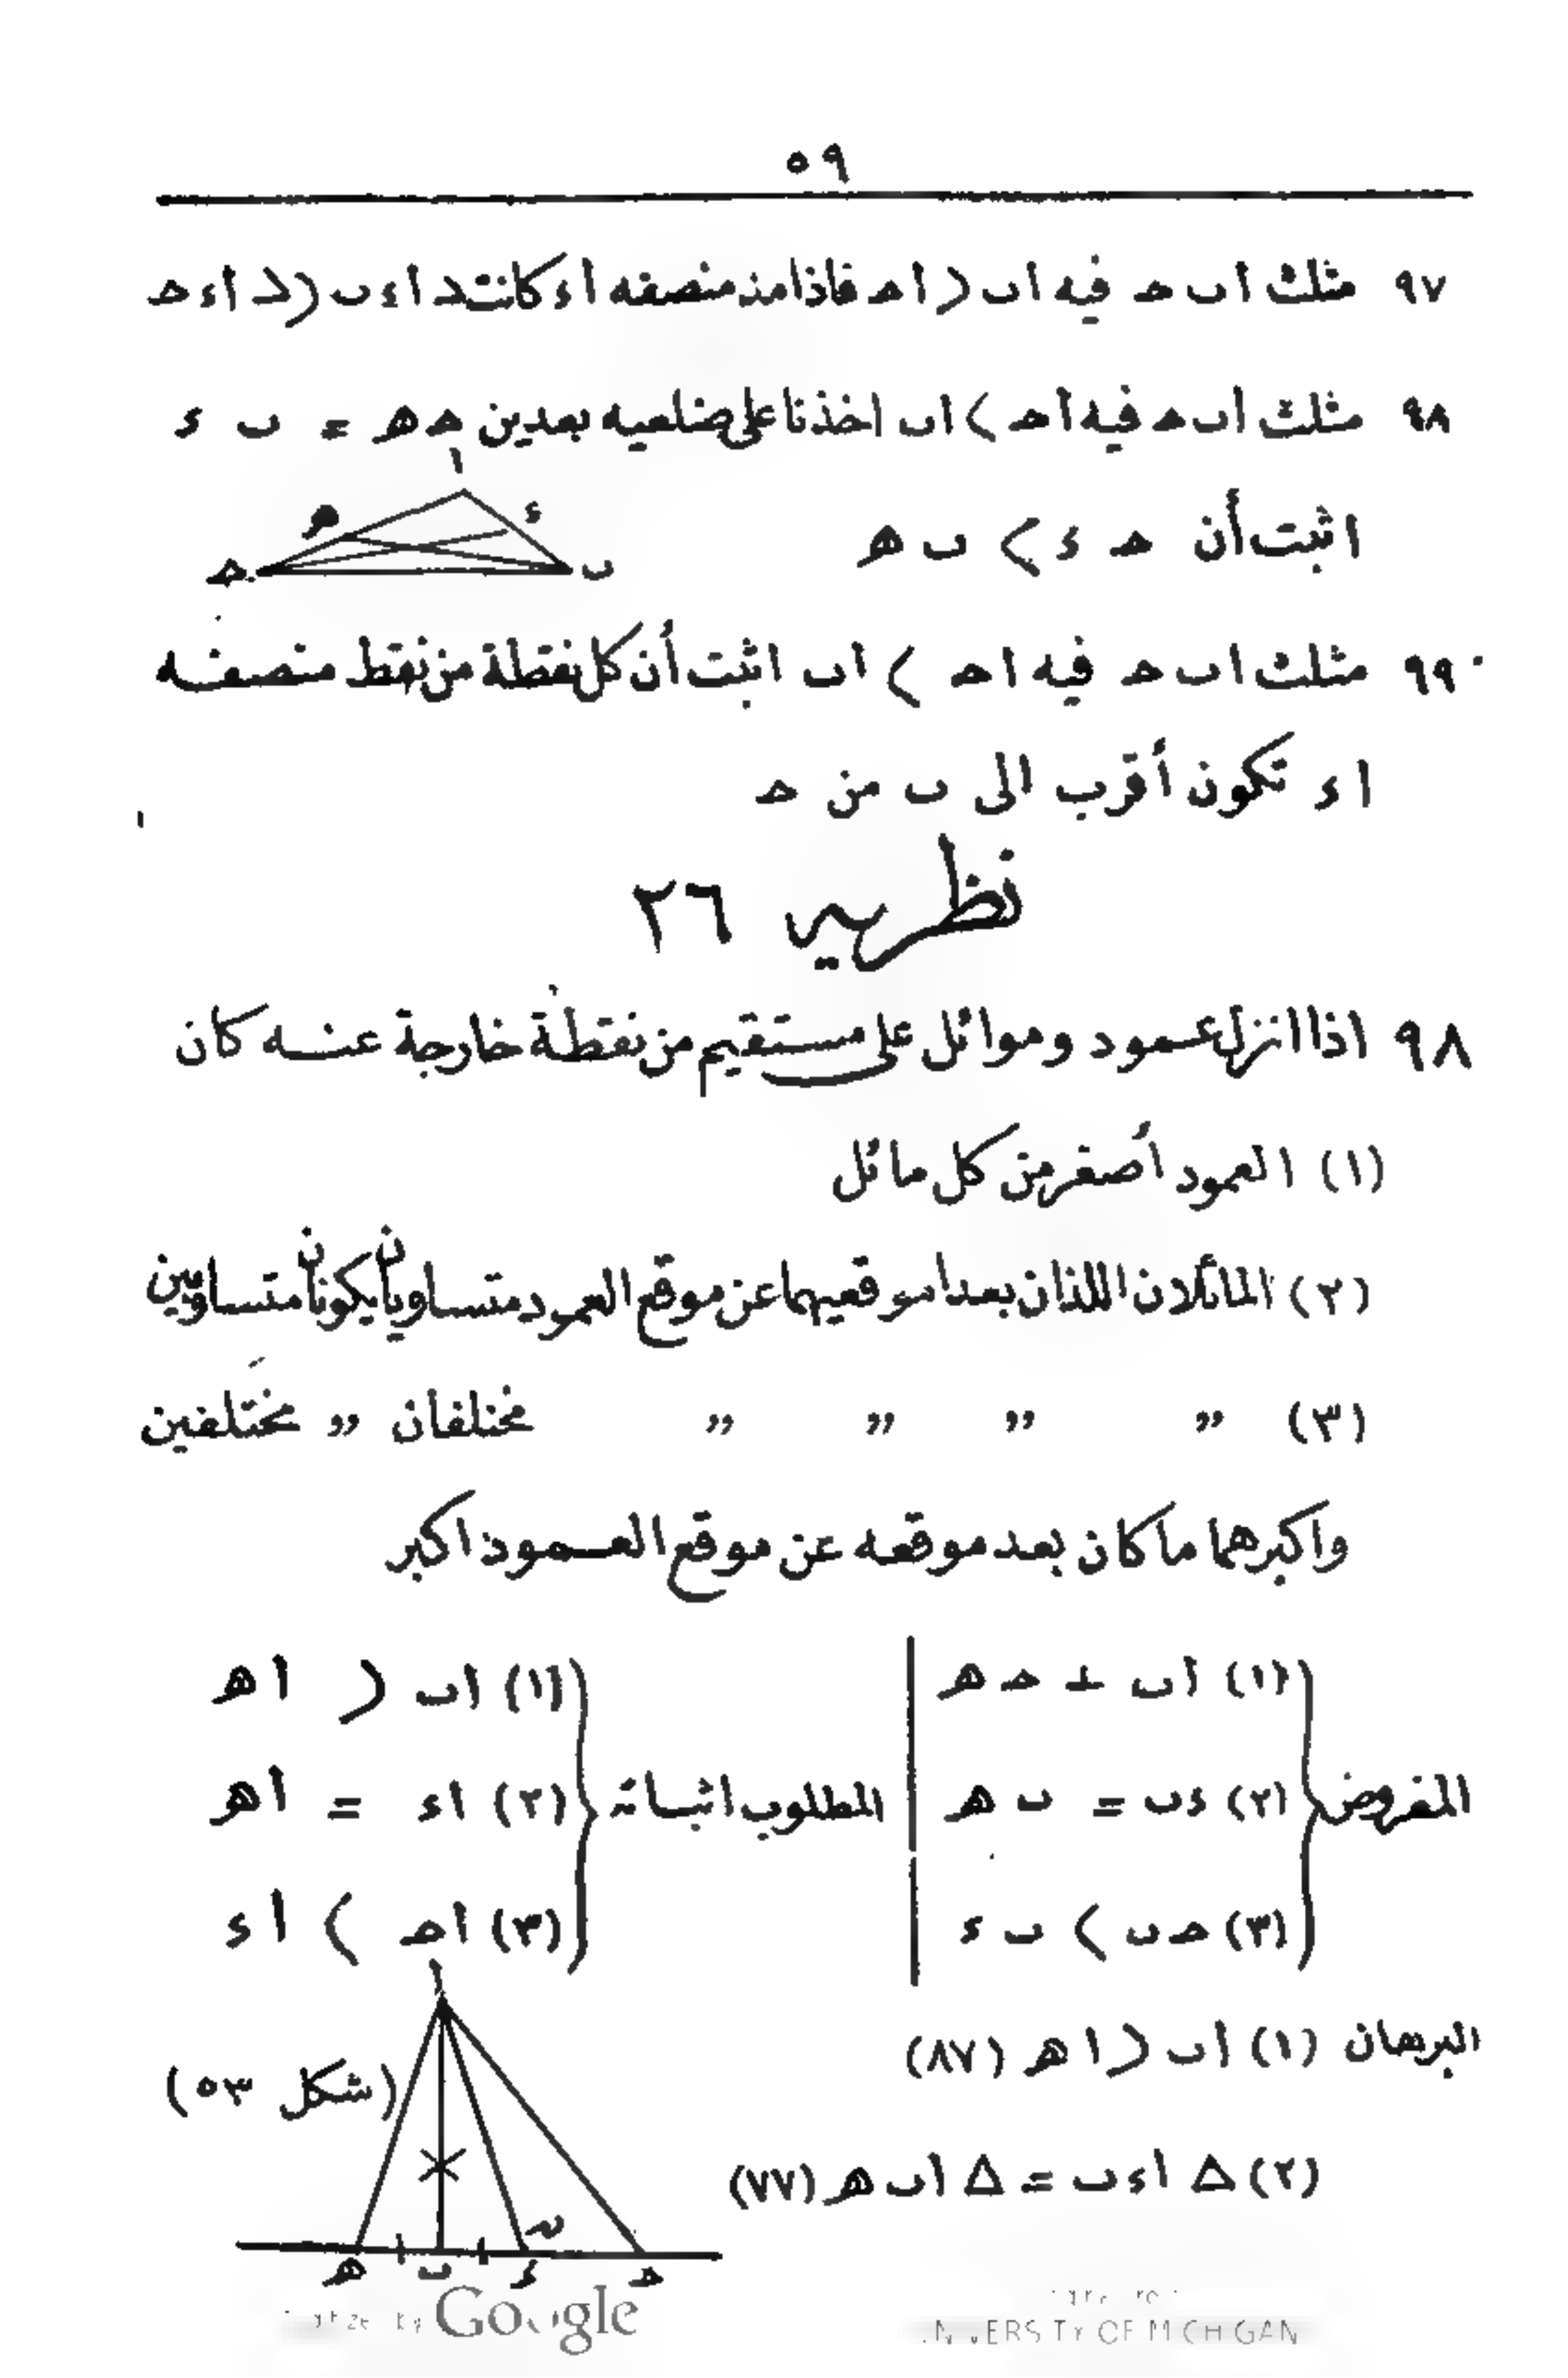 ٥٩
٩٧ مثلث اٮ ح فيه اٮ ⟨ اح فاذامد منصفه اء كانت د اءٮ ⟨ د اءح
٩٨ مثلث اٮ ح فيه اح ⟩ اٮ اخذنا على ضلعيه بعدين ح ه = ٮ ء
اثبت أن ح ء ⟩ ٮ ه
ا
ء
ه
ٮ
ح
٩٩ مثلث اٮ ح فيه اح ⟩ اٮ اثبت أن كل نقطة من نقط منصفه
اء تكون أقرب الى ٮ من ح
نظرية ٢٦
٩٨ اذا انزل عمود وموائل على مستقيم من نقطة خارجة عنه كان
(١) العمود أصغر من كل مائل
(٢) المائلان اللذان بعدا موقعيهما عن موقع العمود متساويان يكونان متساويين
(٣) ” ” ” ” مختلفان ” مختلفين
واكبرهما ما كان بعد موقعه عن موقع العمود اكبر
المفروض (١) اٮ ⊥ ح ه المطلوب اثباته (١) اٮ ⟨ اه
(٢) ءٮ = ٮ ه (٢) اء = اه
(٣) حٮ ⟩ ٮ ء (٣) اح ⟩ اء
البرهان (١) اٮ ⟨ اه (٨٧)
(٢) △ اءٮ = △ اٮ ه (٧٧)
(شكل ٥٣)
ا
ه ٮ ء ح
Google
UNIVERSITY OF MICHIGAN